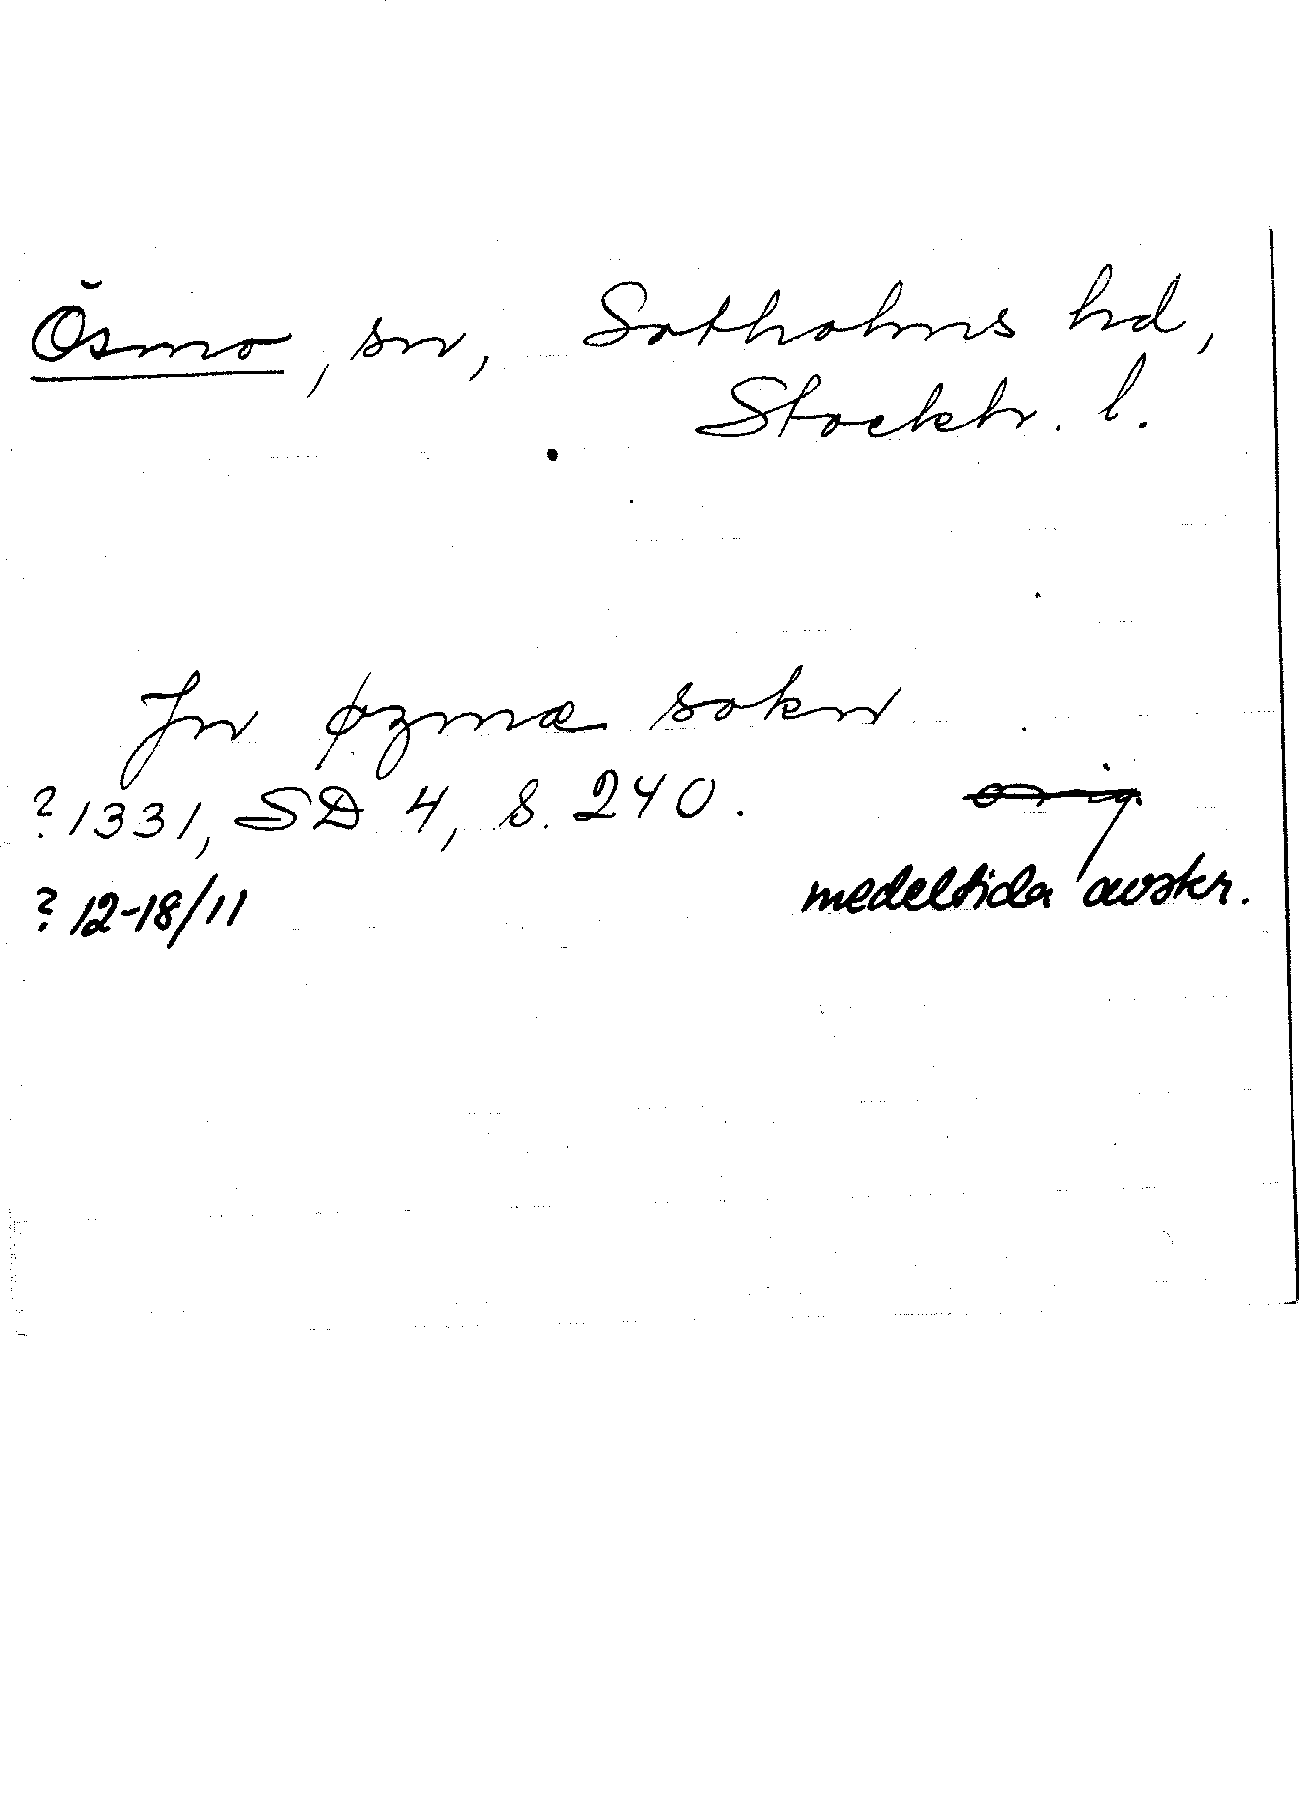 Ösmo, sn, Sotholms hd,
Stockh. l.
In øzmæ sokn
? 1331, SD 4, s. 240. orig.
? 12-18/11 medeltida avskr.